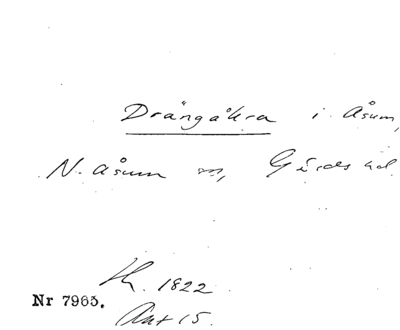 Drängåkra i Åsum,
N. Åsum sn, Gärds hd
1822
Nr 7965.
Akt 15.